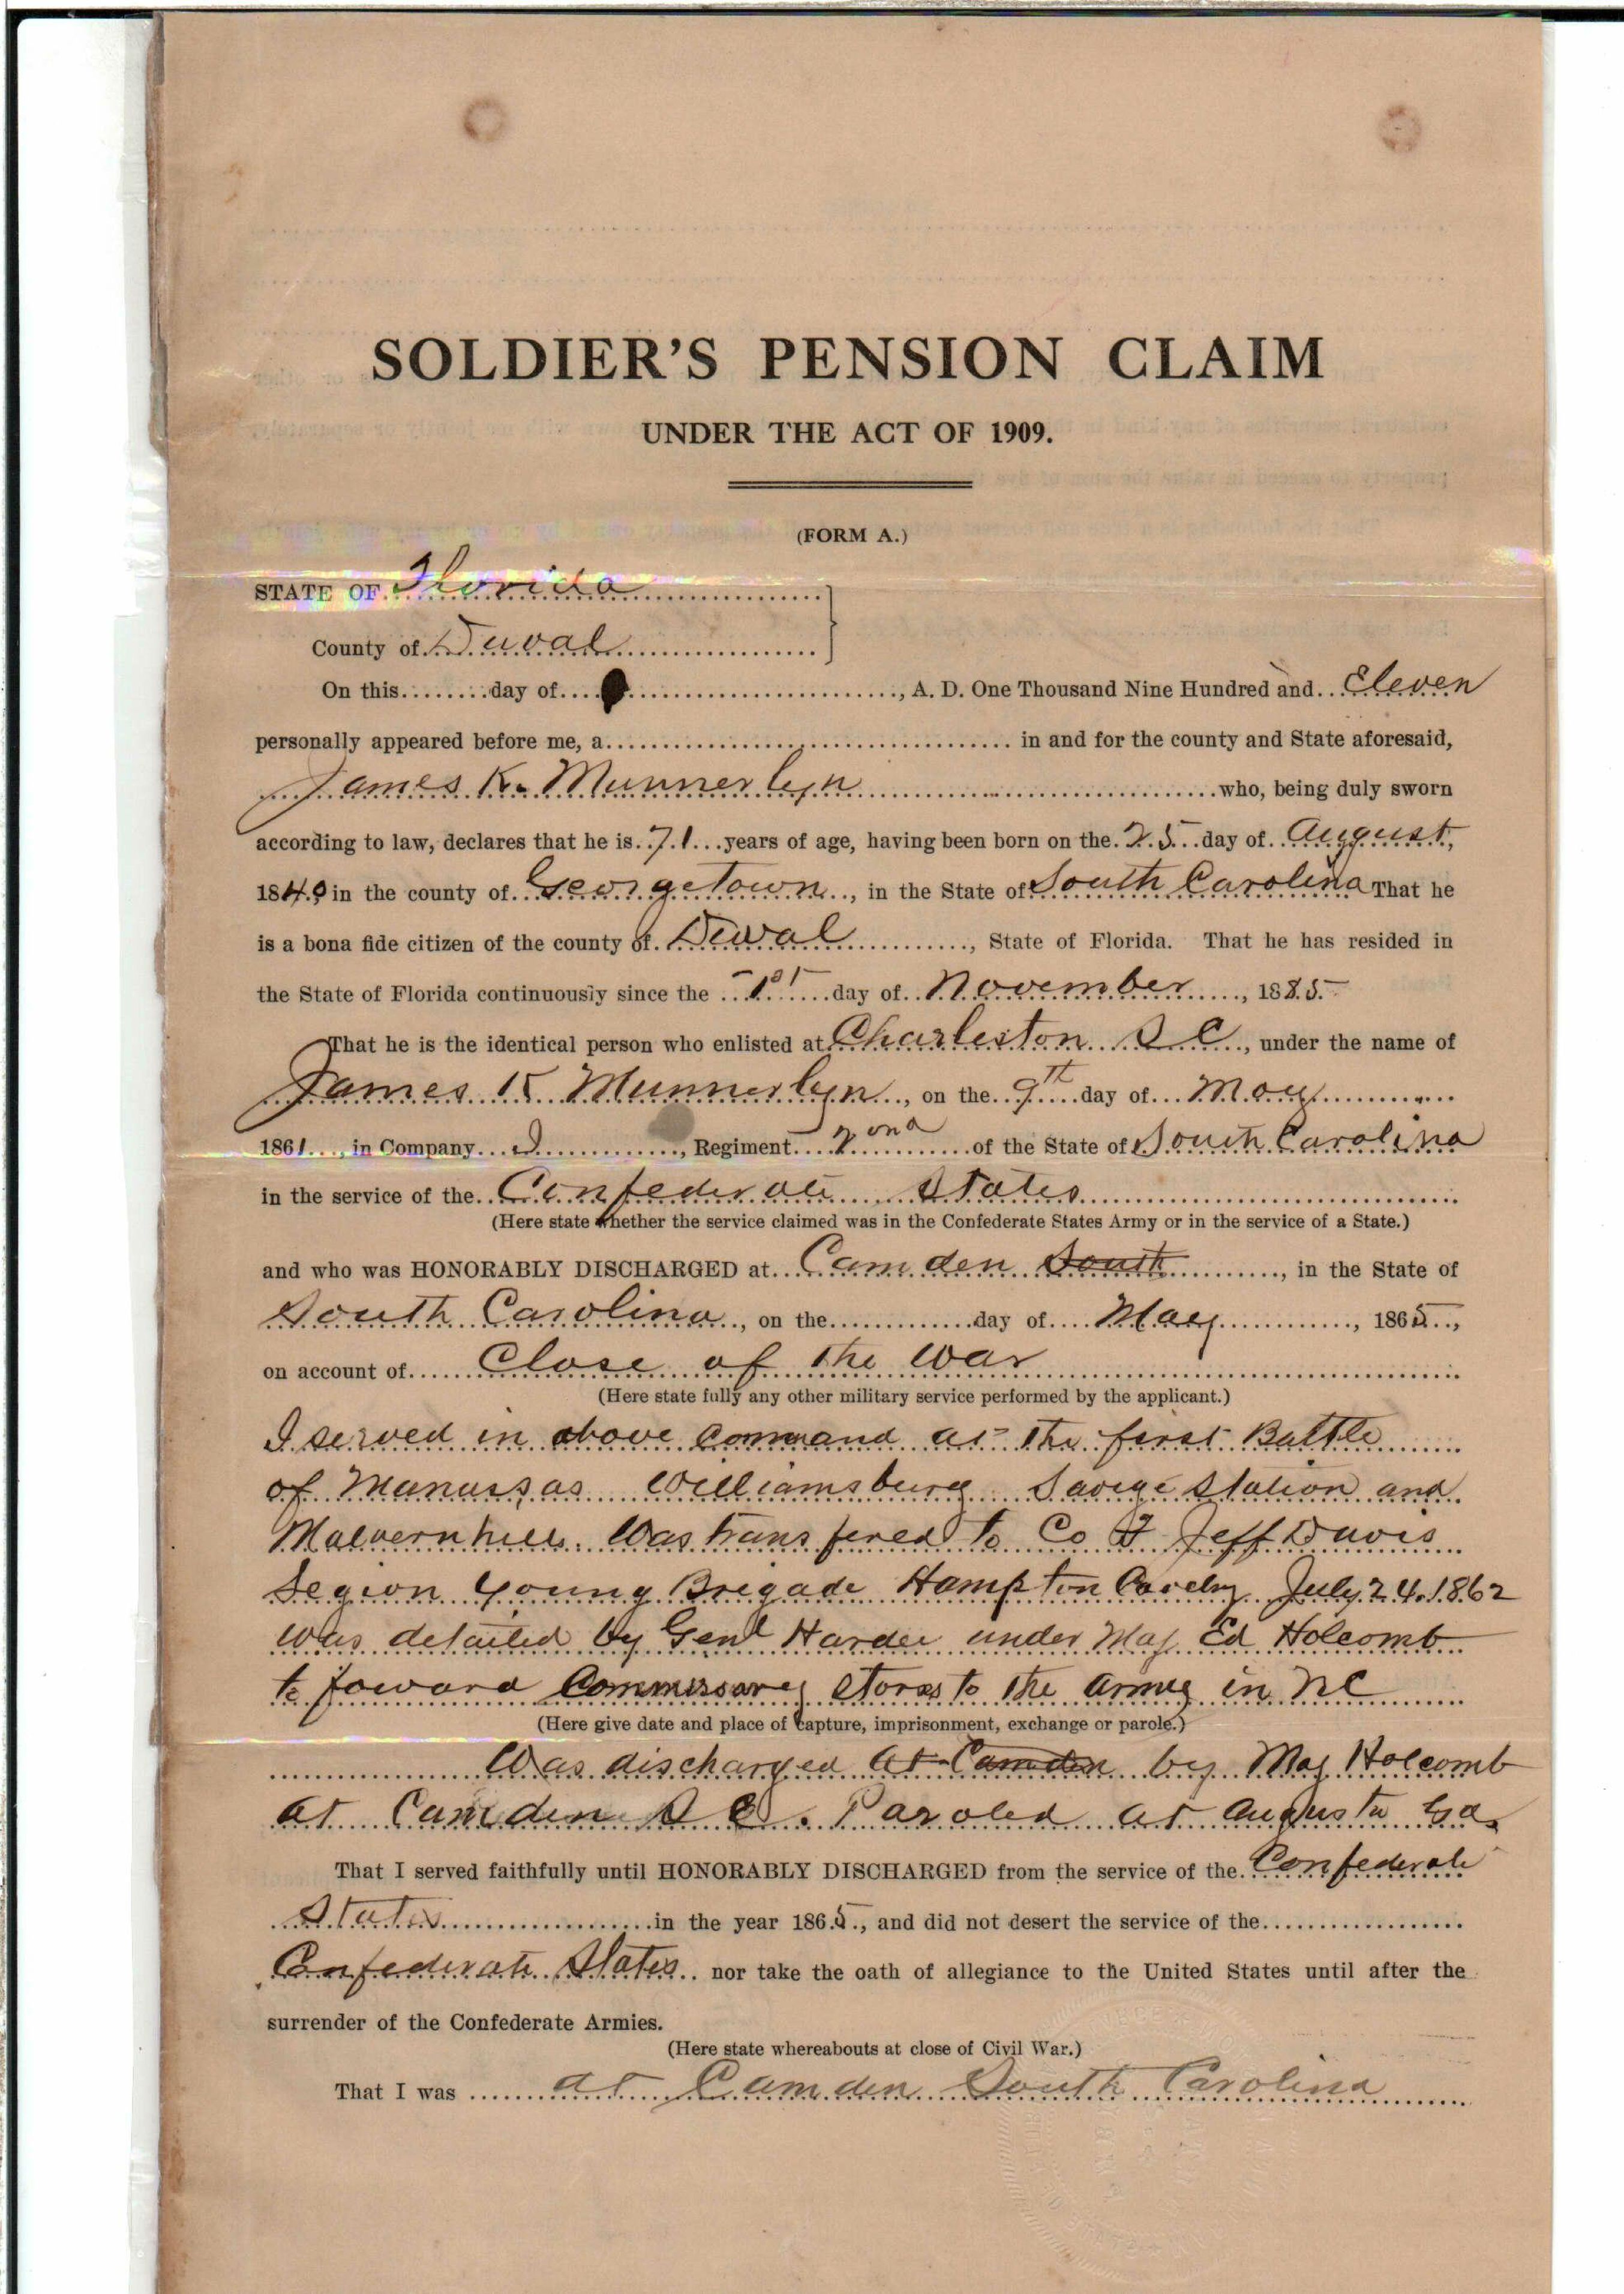 SOLDIER'S PENSION CLAIM
UNDER THE ACT OF 1909.
(FORM A.)
STATE OF Florida
County of Duval
On this ........ day of ........, A. D. One Thousand Nine Hundred and Eleven
personally appeared before me, a ........ in and for the county and State aforesaid,
James K. Munnerlyn ........ who, being duly sworn
according to law, declares that he is 71 years of age, having been born on the 25 day of August,
1840 in the county of Georgetown, in the State of South Carolina That he
is a bona fide citizen of the county of Duval, State of Florida. That he has resided in
the State of Florida continuously since the 1st day of November, 1885
That he is the identical person who enlisted at Charleston S C, under the name of
James K Munnerlyn, on the 9th day of May
1861, in Company I, Regiment 2ond of the State of South Carolina
in the service of the Confederate States
(Here state whether the service claimed was in the Confederate States Army or in the service of a State.)
and who was HONORABLY DISCHARGED at Camden South, in the State of
South Carolina, on the ........ day of May, 1865,
on account of Close of the War
(Here state fully any other military service performed by the applicant.)
I served in above command at the first Battle
of Manassas Williamsburg Savige Station and
Malvernhill. Was transfered to Co F Jeff Davis
Legion Young Brigade Hampton Cavelry July 24.1862
was detailed by Genl Hardee under Maj Ed Holcomb
to foward Commissary Stores to the army in NC
(Here give date and place of capture, imprisonment, exchange or parole.)
Was discharged at Camden by Maj Holcomb
at Camden S C. Paroled at Augusta Ga.
That I served faithfully until HONORABLY DISCHARGED from the service of the Confederate
States in the year 1865, and did not desert the service of the
Confederate States nor take the oath of allegiance to the United States until after the
surrender of the Confederate Armies.
(Here state whereabouts at close of Civil War.)
That I was at Camden South Carolina